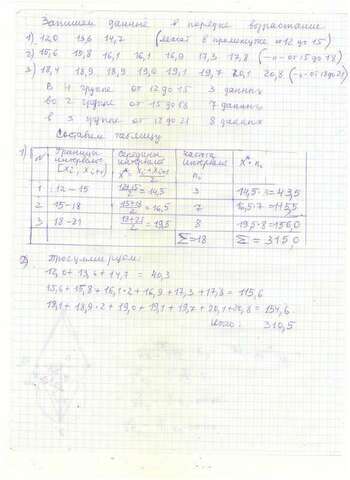 Запишем данные в порядке возрастания
1) 12,0 13,6 14,7 (лежат в промежутке от 12 до 15)
2) 15,6 15,8 16,1 16,1 16,9 17,3 17,8 (-//- от 15 до 18)
3) 18,4 18,9 18,9 19,0 19,1 19,7 20,1 20,8 (-//- от 18 до 21)
В 1 группе от 12 до 15 3 данных
во 2 группе от 15 до 18 7 данных
в 3 группе от 18 до 21 8 данных
Составим таблицу
1) № Границы интервала [xi ; xi+1) Середины интервала Частота интервала
1 12-15 = 14,5 3 14,5·3=43,5
2 15-18 15+18/2 = 16,5 7 16,5·7=115,5
3 18-21 = 19,5 8 19,5·8=156,0
Σ=18 Σ=315,0
2) Просуммируем:
12,0+13,6+14,7 = 40,3
15,6+15,8+16,1·2+16,9+17,3+17,8 = 115,6
+18,9·2+19,0+19,1+19,7+20,1+20,8 = 154,6
Итого: 310,5